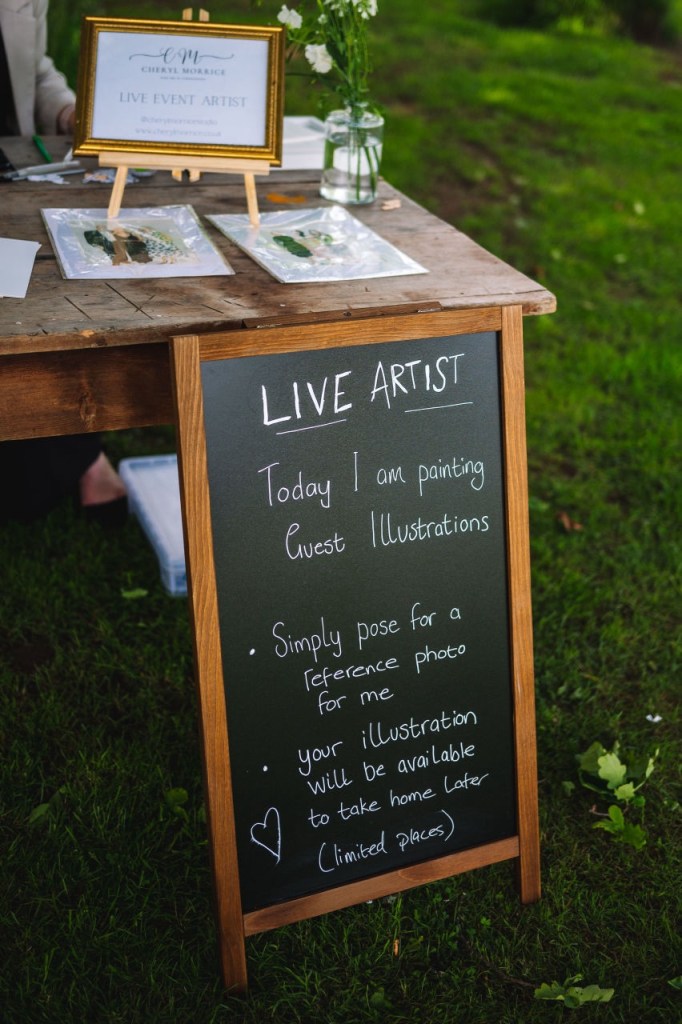 CM
CHERYL MORRICE
LIVE EVENT ARTIST
LIVE ARTIST
Today I am painting
Guest Illustrations
• Simply pose for a
reference photo
for me
• your illustration
will be available
to take home later
(limited places)